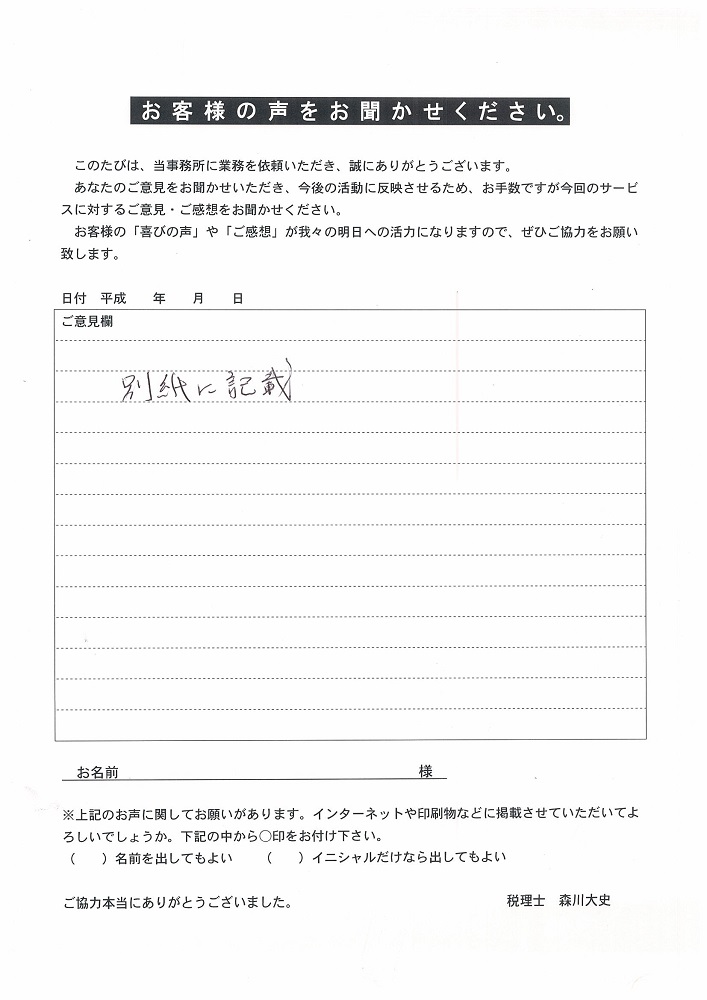 お客様の声をお聞かせください。
このたびは、当事務所に業務を依頼いただき、誠にありがとうございます。
あなたのご意見をお聞かせいただき、今後の活動に反映させるため、お手数ですが今回のサービ
スに対するご意見・ご感想をお聞かせください。
お客様の「喜びの声」や「ご感想」が我々の明日への活力になりますので、ぜひご協力をお願い
致します。
日付　平成　　年　　月　　日
ご意見欄
別紙に記載
お名前　　　　　　　　　　様
※上記のお声に関してお願いがあります。インターネットや印刷物などに掲載させていただいてよ
ろしいでしょうか。下記の中から○印をお付け下さい。
（　　）名前を出してもよい　　（　　）イニシャルだけなら出してもよい
ご協力本当にありがとうございました。
税理士　森川大史